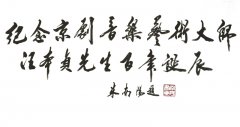 纪念京剧音乐艺术大师
汪本贞先生百年诞辰
朱南阳题